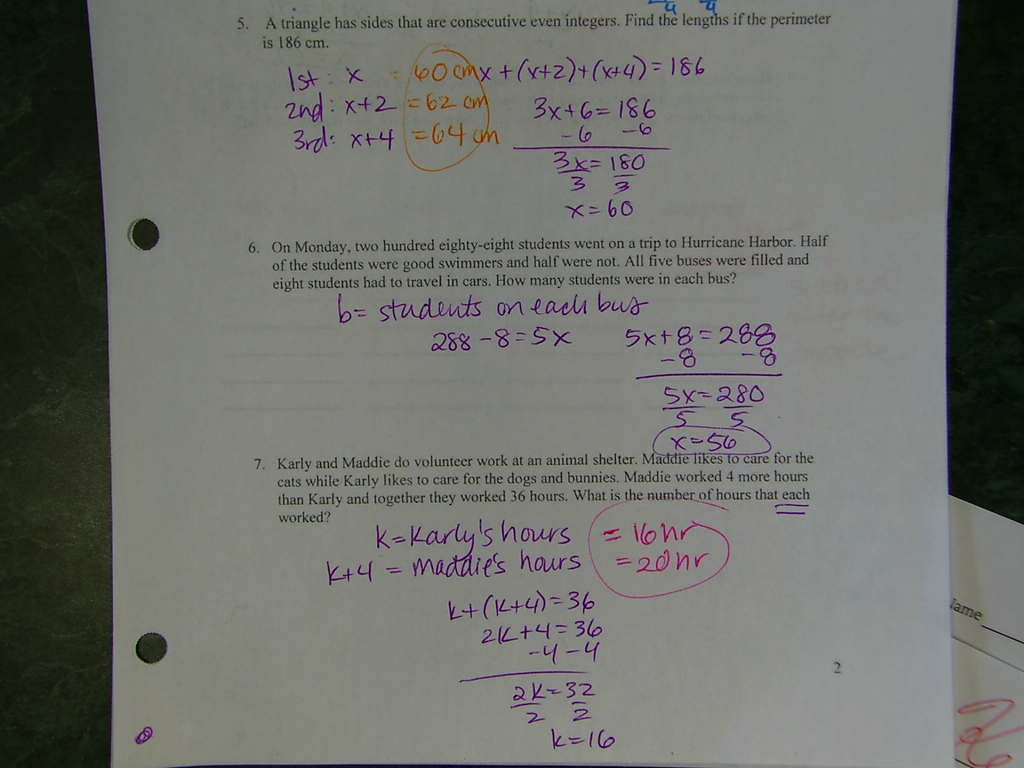 5. A triangle has sides that are consecutive even integers. Find the lengths if the perimeter
is 186 cm.
1st: x = 60 cm x + (x+2) + (x+4) = 186
2nd: x+2 = 62 cm 3x+6 = 186
3rd: x+4 = 64 cm -6 -6
3x = 180
3 3
x = 60
6. On Monday, two hundred eighty-eight students went on a trip to Hurricane Harbor. Half
of the students were good swimmers and half were not. All five buses were filled and
eight students had to travel in cars. How many students were in each bus?
b = students on each bus
288 - 8 = 5x 5x + 8 = 288
-8 -8
5x = 280
5 5
x = 56
7. Karly and Maddie do volunteer work at an animal shelter. Maddie likes to care for the
cats while Karly likes to care for the dogs and bunnies. Maddie worked 4 more hours
than Karly and together they worked 36 hours. What is the number of hours that each
worked?
k = Karly's hours = 16 hr
k+4 = maddie's hours = 20 hr
k + (k+4) = 36
2k + 4 = 36
-4 -4
2k = 32
2 2
k = 16
2